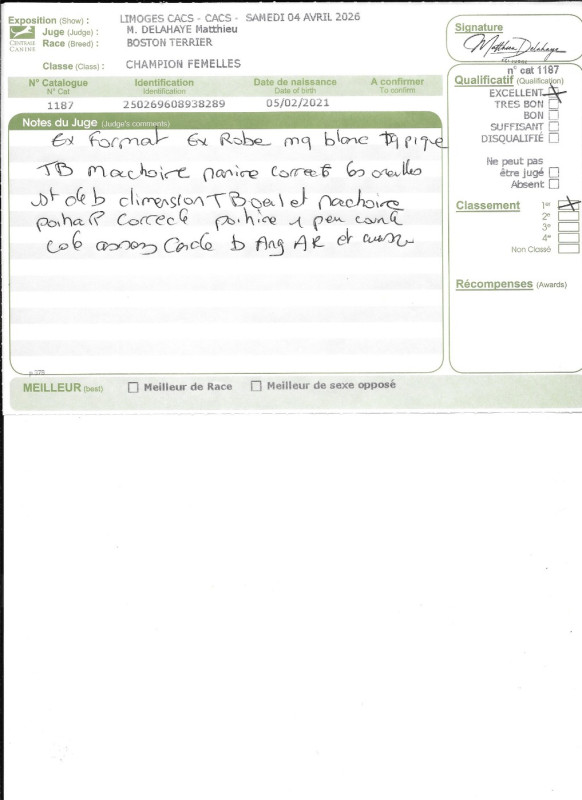 Exposition (Show) : LIMOGES CACS - CACS - SAMEDI 04 AVRIL 2026
Juge (Judge) : M. DELAHAYE Matthieu
Race (Breed) : BOSTON TERRIER
CENTRALE CANINE
Classe (Class) : CHAMPION FEMELLES
N° Catalogue Identification Date de naissance A confirmer
N° Cat Identification Date of birth To confirm
1187 250269608938289 05/02/2021
Notes du Juge (Judge's comments)
Ex Format Ex Robe mq blanc Typique
TB Machoire correct les oreilles
dimension TB oeil et machoire
correcte 1 peu
assez Ang AR et
p 578
MEILLEUR (best) Meilleur de Race Meilleur de sexe opposé
Signature
Matthieu Delahaye
n° cat 1187
Qualificatif (Qualification)
EXCELLENT
TRES BON
BON
SUFFISANT
DISQUALIFIÉ
Ne peut pas
être jugé
Absent
Classement 1er
2e
3e
4e
Non Classé
Récompenses (Awards)